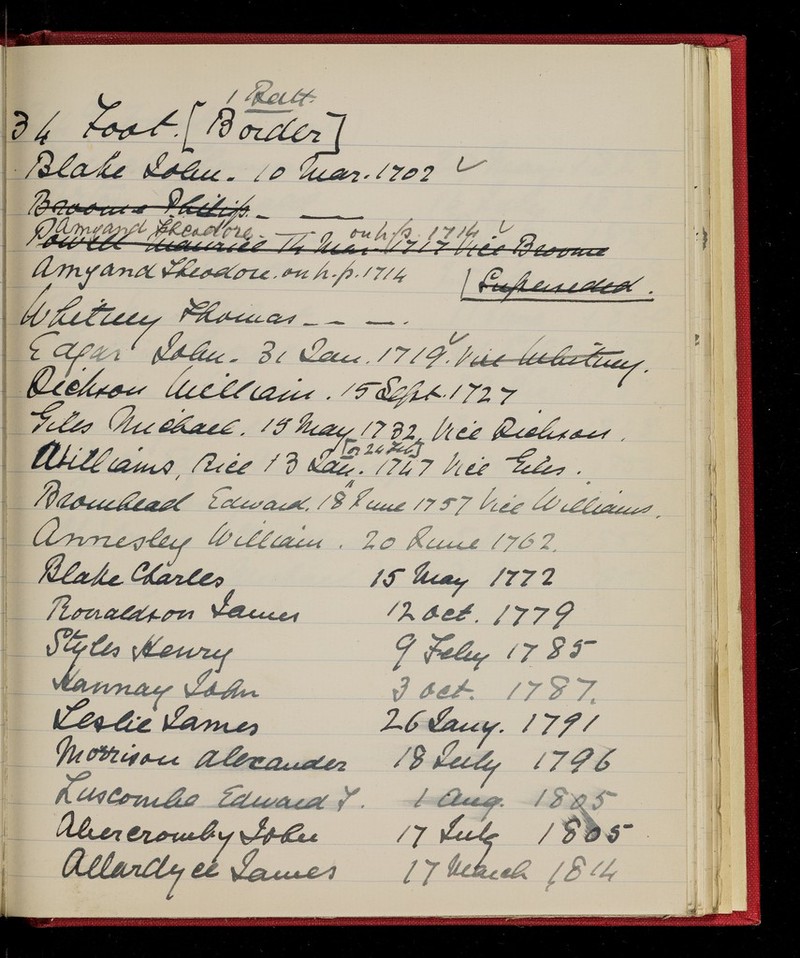 1 Batt.
34 Foot. [Border]
Blake John. 10 Mar. 1702 ✓
Broome Philip. — —
Amyand Theodore. — on h.p. 1714 ✓
Powell Maurice 14 Mar. 1717 Vice Broome
Amyand Theodore. on h.p. 1714 | Superseded.
Whitney Thomas — — —.
Edgar John. 31 Jan. 1719. ✓ Vice Whitney.
Dickson William. 15 Sept. 1727
Giles Michael. 15 May 1732, Vice Dickson.
[or 24 Feb]
Williams, Rice 13 Jan. 1747 Vice Giles.
Bromhead Edward. 18 June 1757 Vice Williams.
Annesley William. 20 June 1762.
Blake Charles 15 May 1772
Ronaldson James 12 Oct. 1779
Styles Henry 9 Feby 1785
Hannay John 3 Oct. 1787.
Leslie James 26 Jany. 1791
Morrison Alexander 18 July 1796
Luscombe Edward T. 1 Aug. 1805
Abercromby John 17 July 1805
Allardyce James 17 March 1814